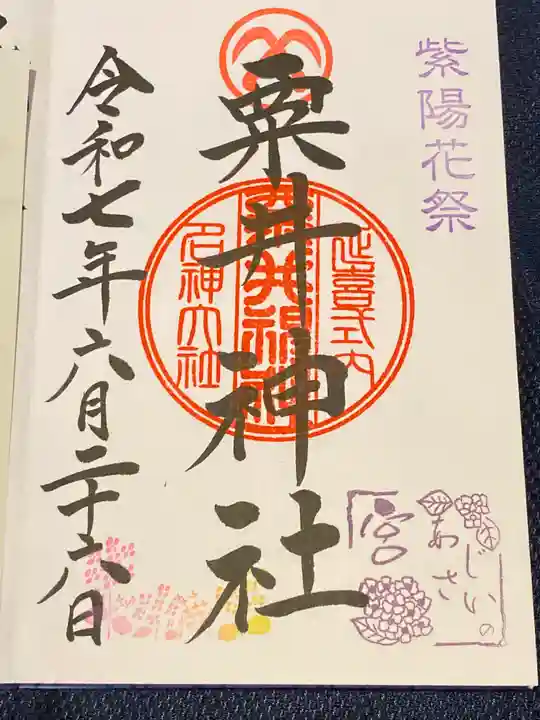 紫陽花祭
粟井神社
延喜式内
粟井神社
名神大社
あじさいの
宮
令和七年六月二十六日